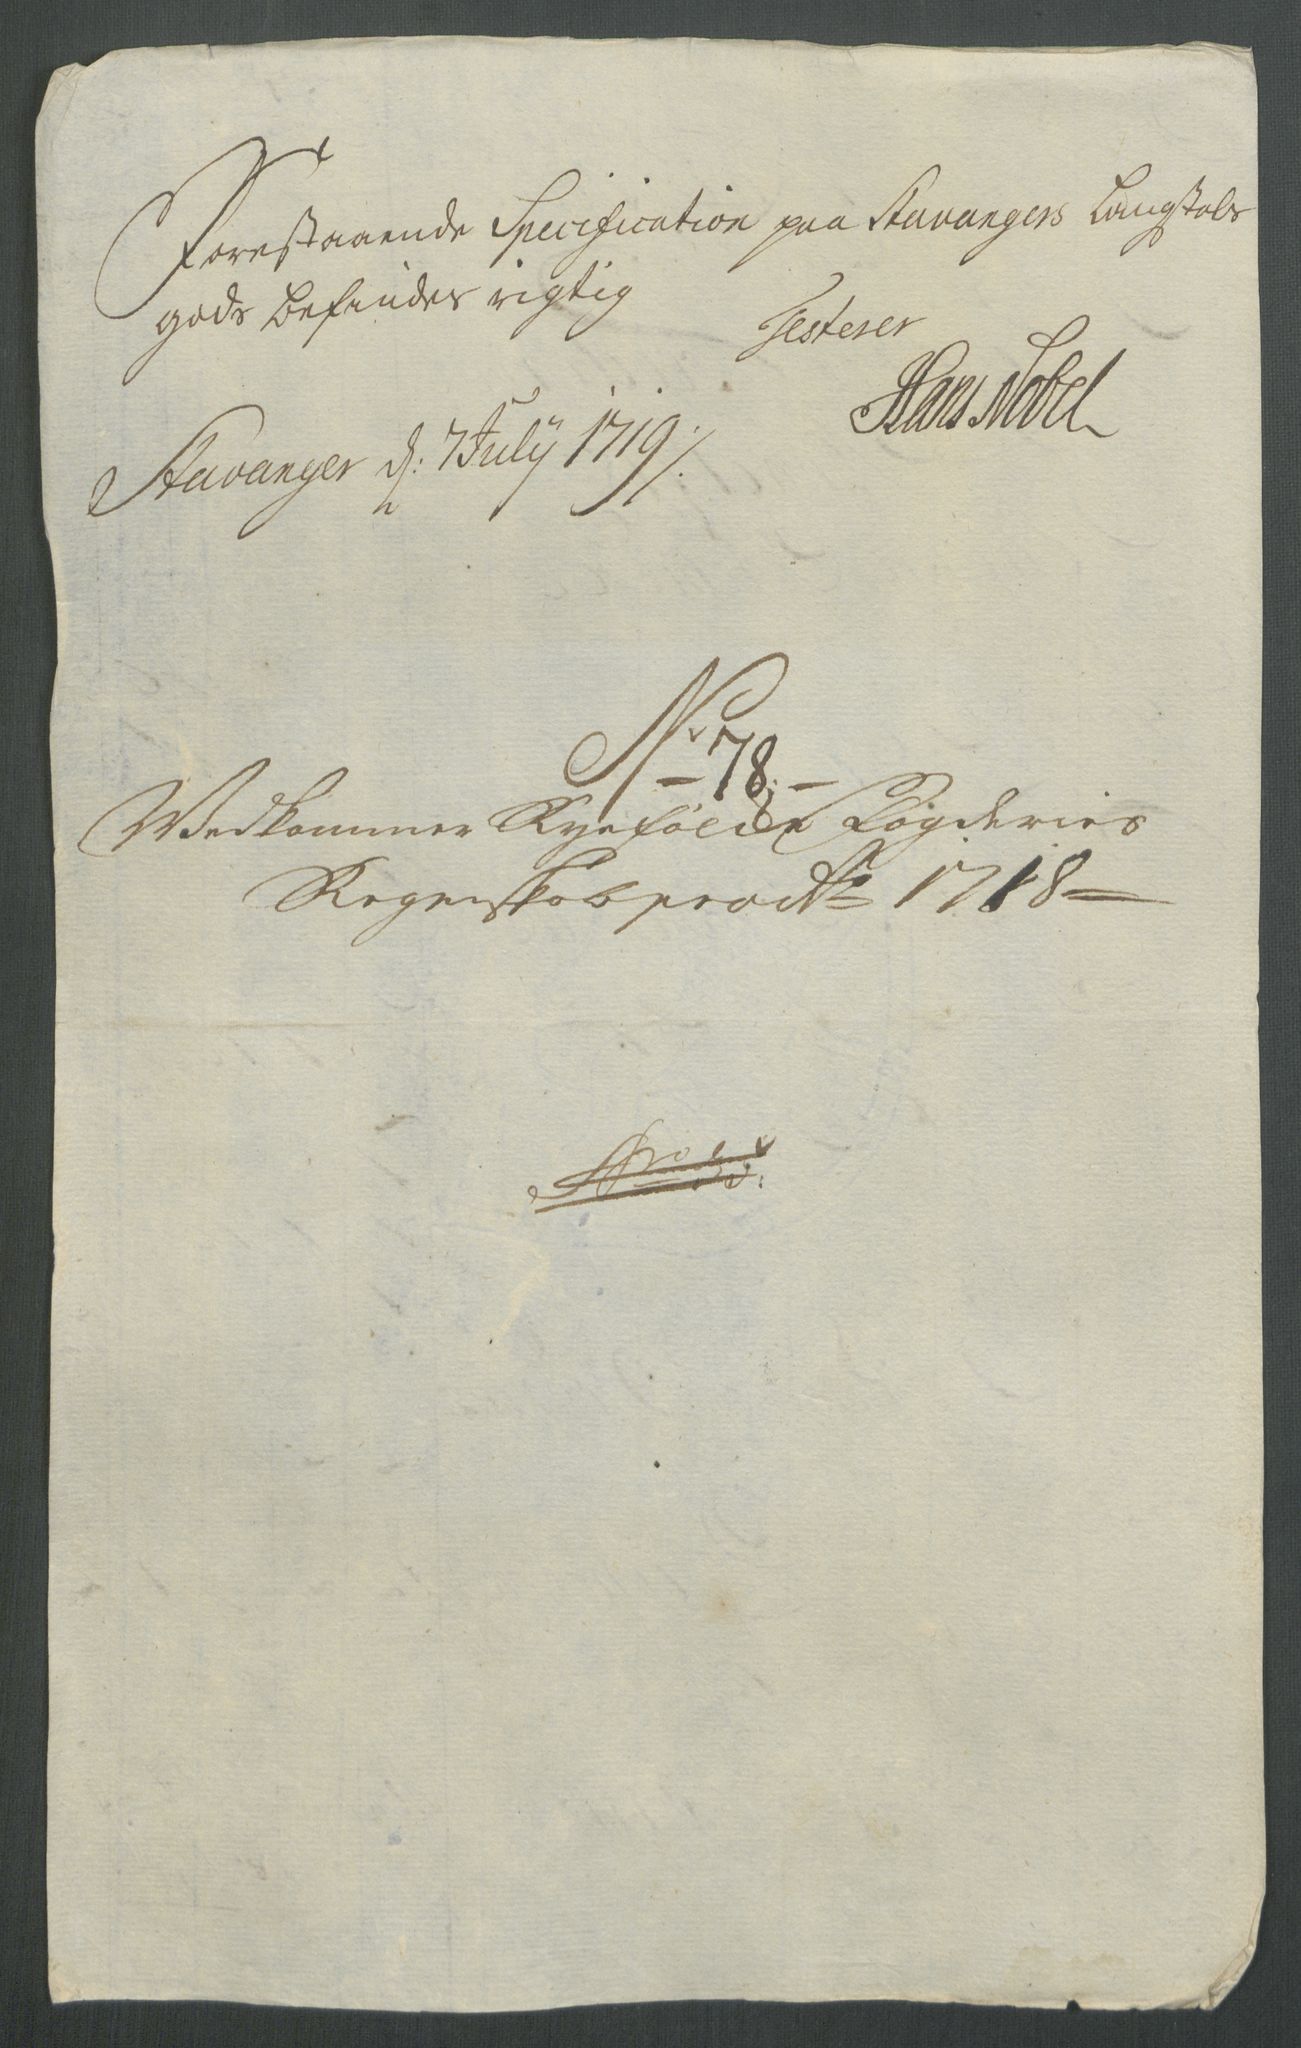 Forestaaende Specification paa Stavangers Laugstols
gods befindes rigtig
Testerer
Hans Nobel
Stavanger d: 7 July 1719 /.
No 78,
Wedkommer Ryefölche Fogderies
Regenskab pro Ao 1718